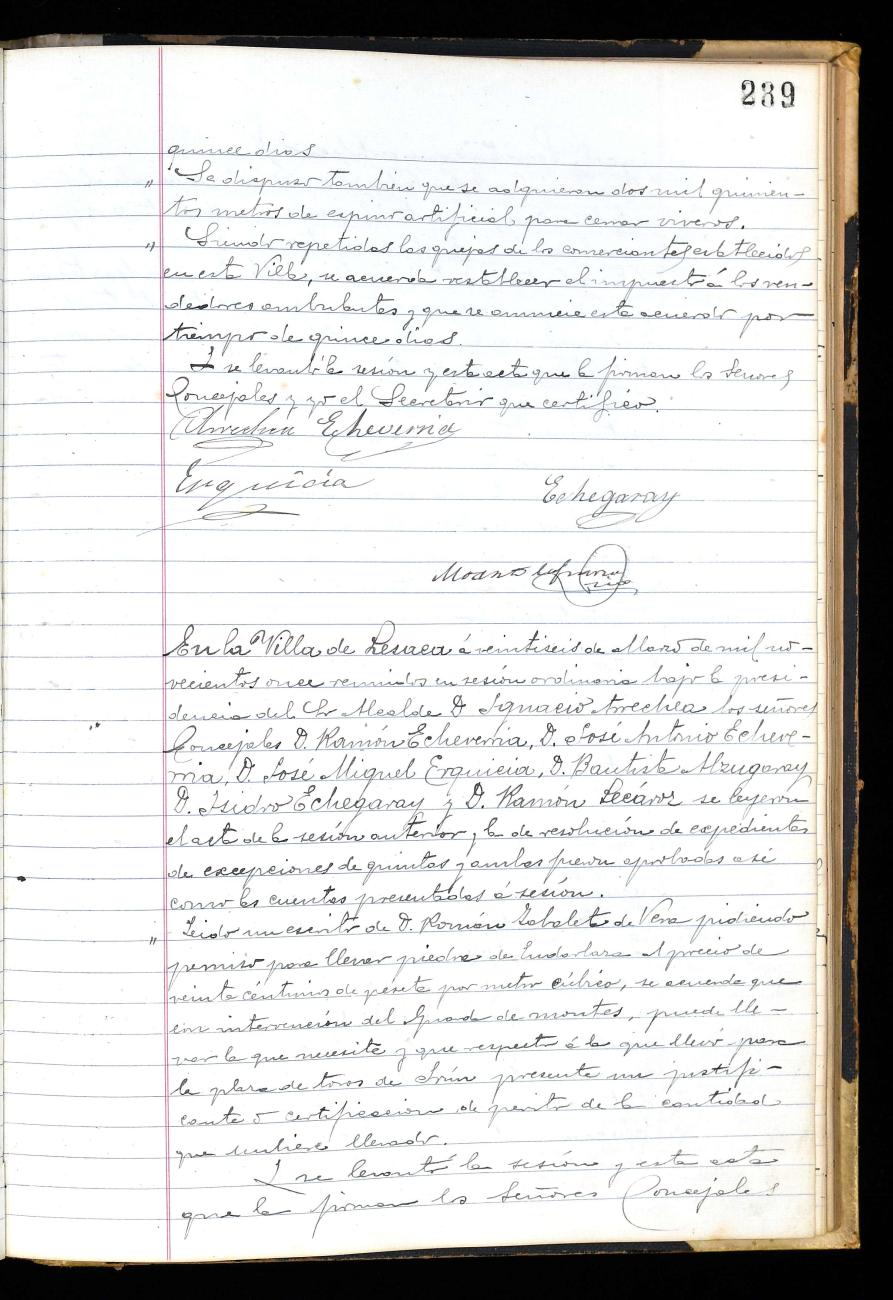 289
quince dias
" Se dispuso tambien que se adquieran dos mil quinien-
tos metros de espino artificial para cerrar viveros.
" Siendo repetidas las quejas de los comerciantes establecidos
en esta Villa, se acuerda restablecer el impuesto á los ven-
dedores ambulantes y que se anuncie este acuerdo por
tiempo de quince dias.
Y se levantó la sesión y esta acta que la firman los Señores
Concejales y yo el Secretario que certifico.
Arrechea Echeverria
Erquicia Echegaray
En la Villa de Lesaca á veintiseis de Marzo de mil no-
vecientos once reunidos en sesión ordinaria bajo la presi-
dencia del Sr Alcalde D Ignacio Arrechea los señores
Concejales D. Ramón Echeverria, D. José Antonio Echeve-
rria, D. José Miguel Erquicia, D. Bautista Alzugaray
D. Isidro Echegaray y D. Ramón Lecároz se leyeron
el acta de la sesión anterior y la de resolución de expedientes
de excepciones de quintas y ambas fueron aprobadas asi
como las cuentas presentadas á sesión.
" Leido un escrito de D. Román Zabaleta de Vera pidiendo
permiso para llevar piedra de Endarlaza al precio de
veinte céntimos de peseta por metro cúbico, se acuerda que
con intervención del Guarda de montes, puede lle-
var la que necesite y que respecto á la que llevó para
la plaza de toros de Irún presente un justifi-
cante ó certificacion de perito de la cantidad
que hubiere llevado.
Y se levantó la sesión y esta acta
que la firman los Señores Concejales